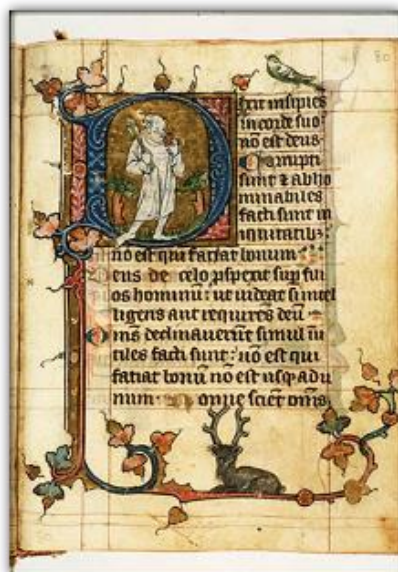 80
Dixit insipiēs
in corde suo
nō est deus
Corrupti
sunt ⁊ abho
minabiles
facti sunt in
iniquitatibꝫ:
nō est qui faciat bonum
Deus de celo ꝓspexit sup fili
os hominū: ut uideat si intel
ligens aut requirēs deū
Om̄s declinauerūt simul inu
tiles facti sunt: nō est qui
faciat bonū nō est usqꝫ ad u
num Nonne scient om̄s